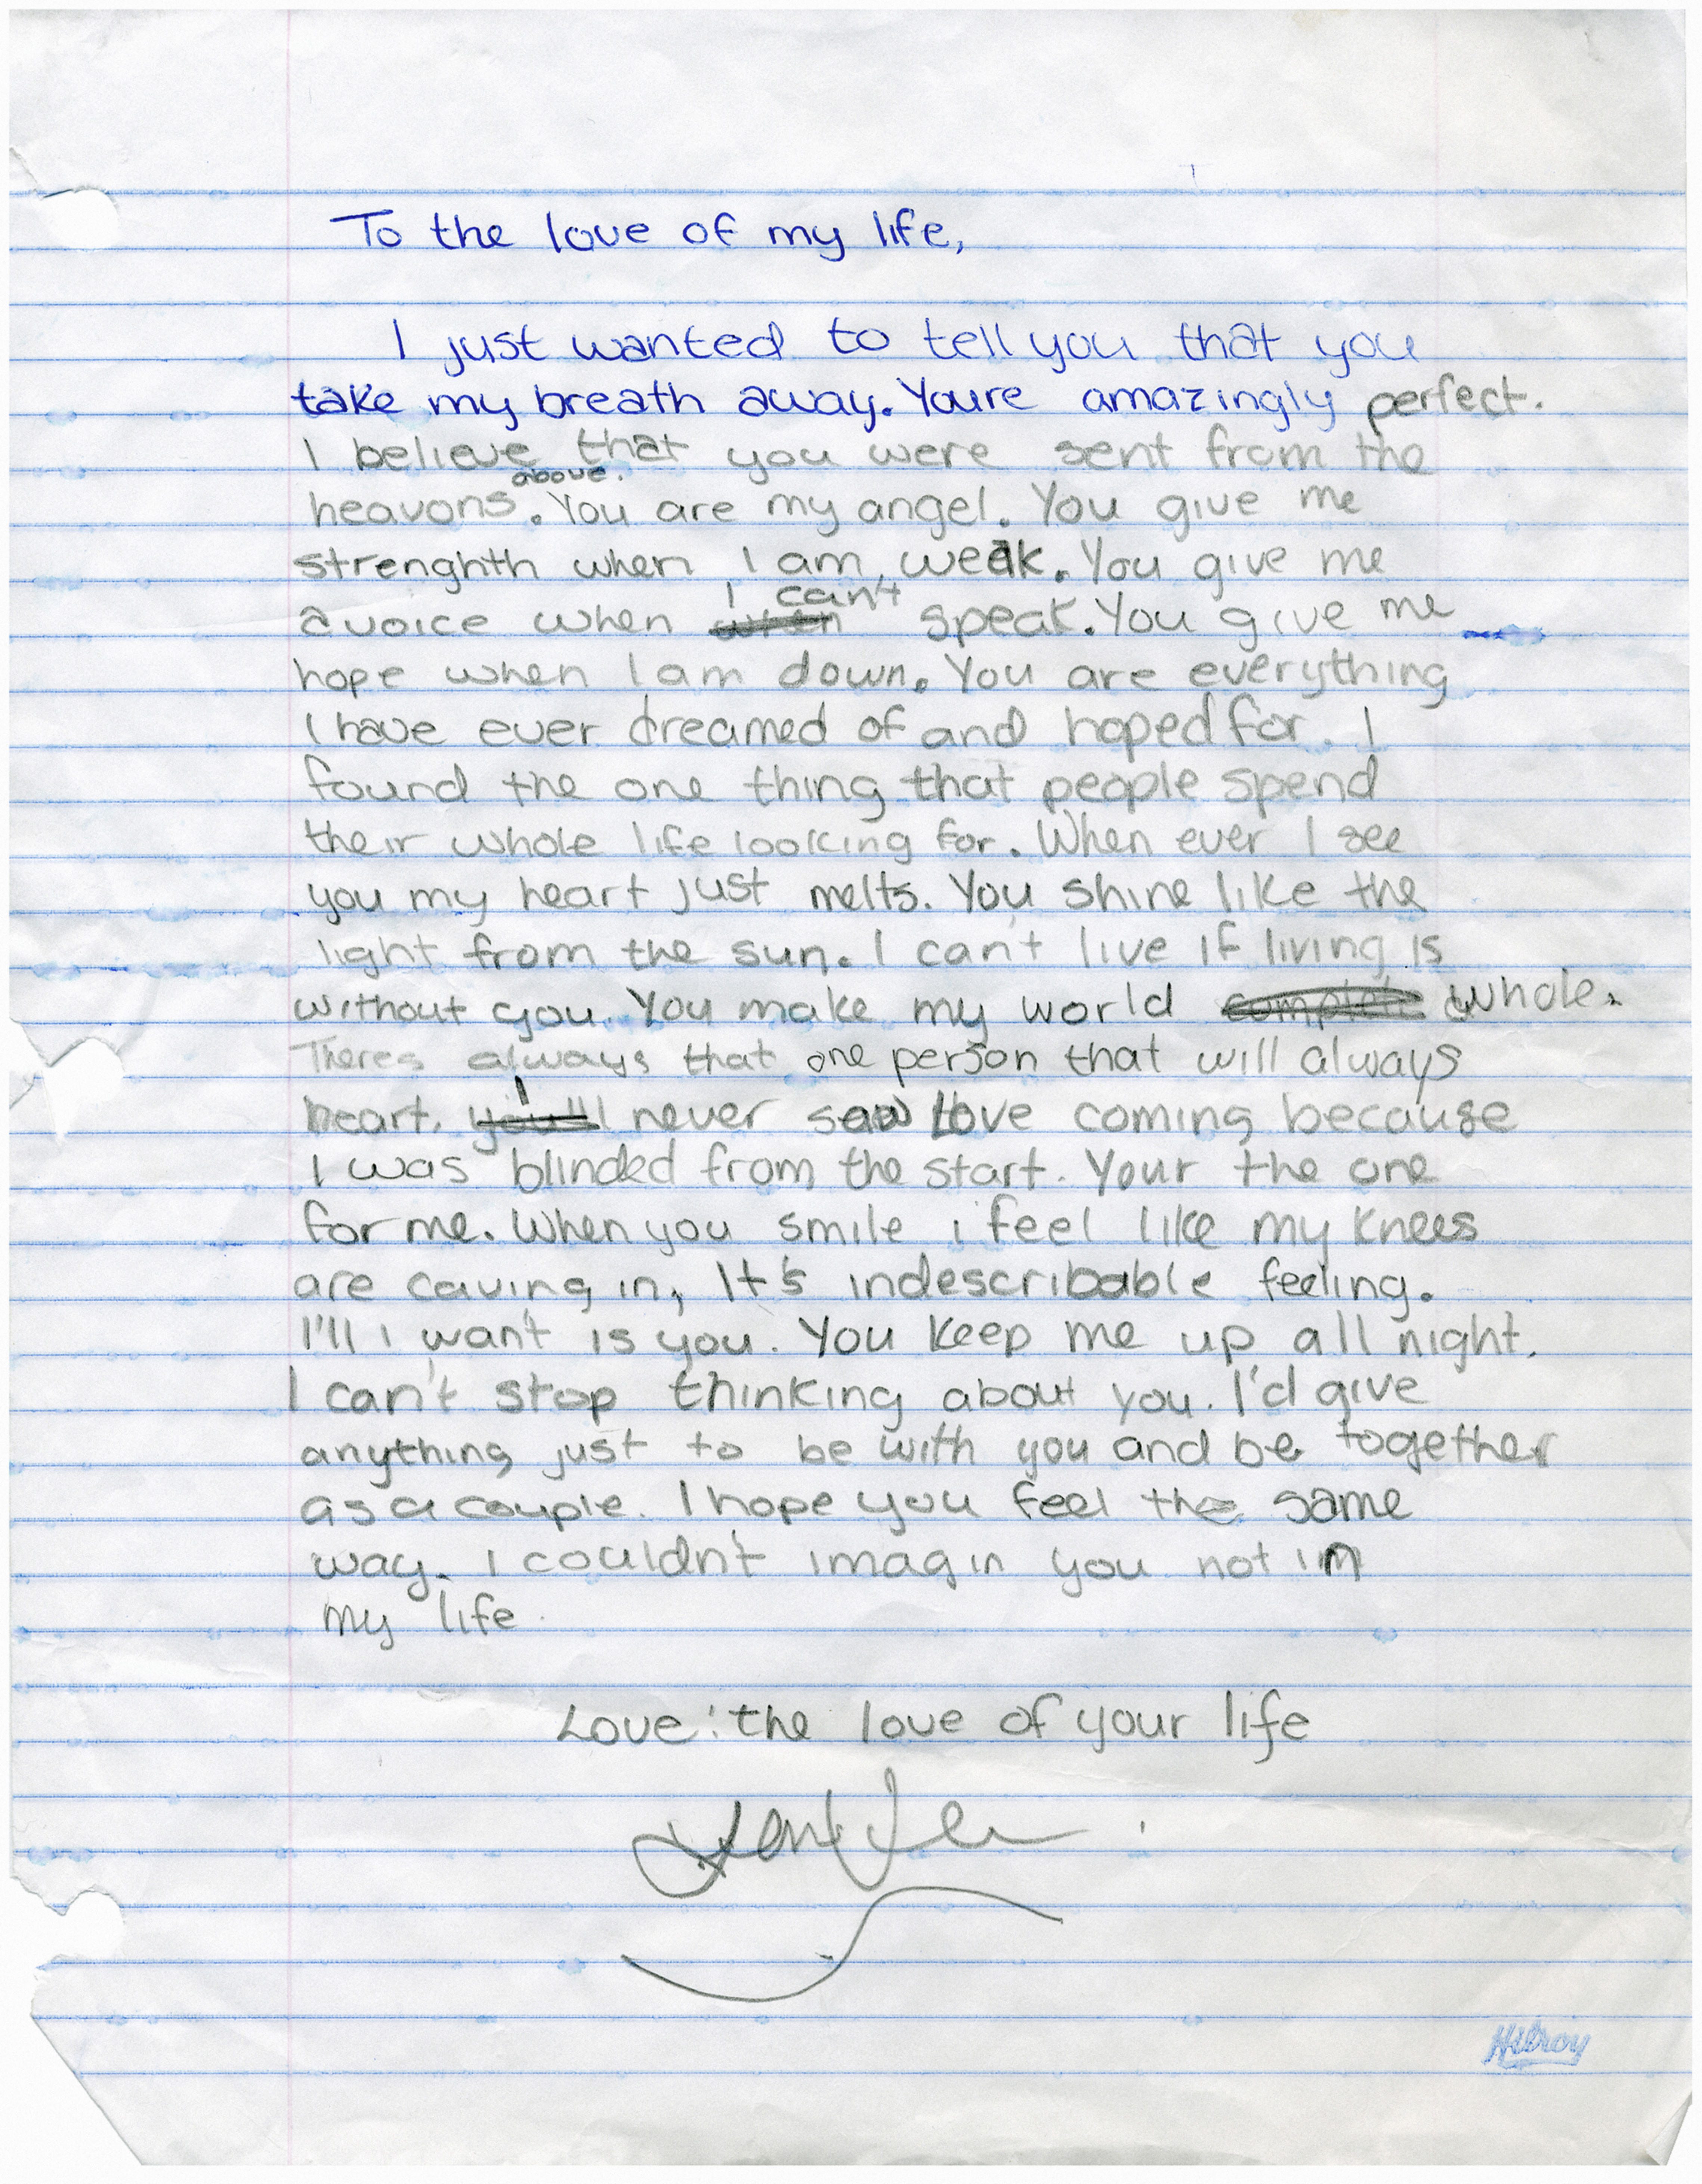 To the love of my life,
I just wanted to tell you that you
take my breath away. Youre amazingly perfect.
I believe that you were sent from the
above.
heavons. You are my angel. You give me
strenghth when I am weak. You give me
I can't
a voice when when speak. You give me
hope when I am down. You are everything
I have ever dreamed of and hoped for. I
found the one thing that people spend
their whole life looking for. When ever I see
you my heart just melts. You shine like the
light from the sun. I can't live if living is
without you. You make my world complete whole.
Theres always that one person that will always
heart. you'll I never saw love coming because
I was blinded from the start. Your the one
for me. When you smile i feel like my knees
are caving in, It's indescribable feeling.
I'll i want is you. You keep me up all night.
I can't stop thinking about you. I'd give
anything just to be with you and be together
as a couple. I hope you feel the same
way. I couldn't imagin you not in
my life.
Love: the love of your life
Hilroy